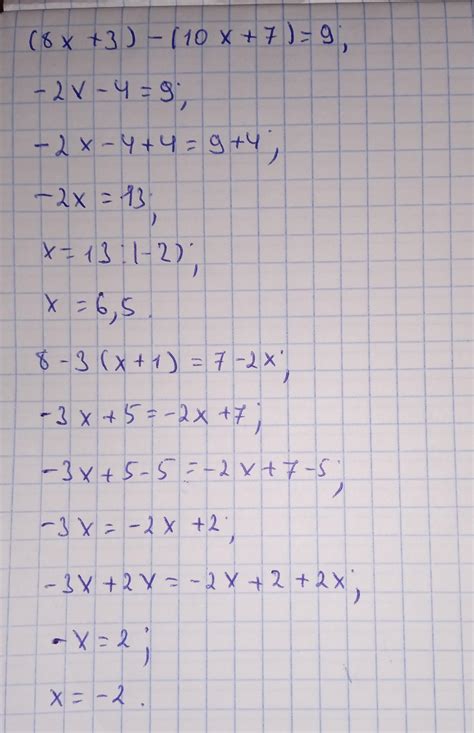 (8x+3)-(10x+7)=9;
-2x-4=9;
-2x-4+4=9+4;
-2x=13;
x=13:(-2);
x=6,5.
8-3(x+1)=7-2x;
-3x+5=-2x+7;
-3x+5-5=-2x+7-5;
-3x=-2x+2;
-3x+2x=-2x+2+2x;
-x=2;
x=-2.